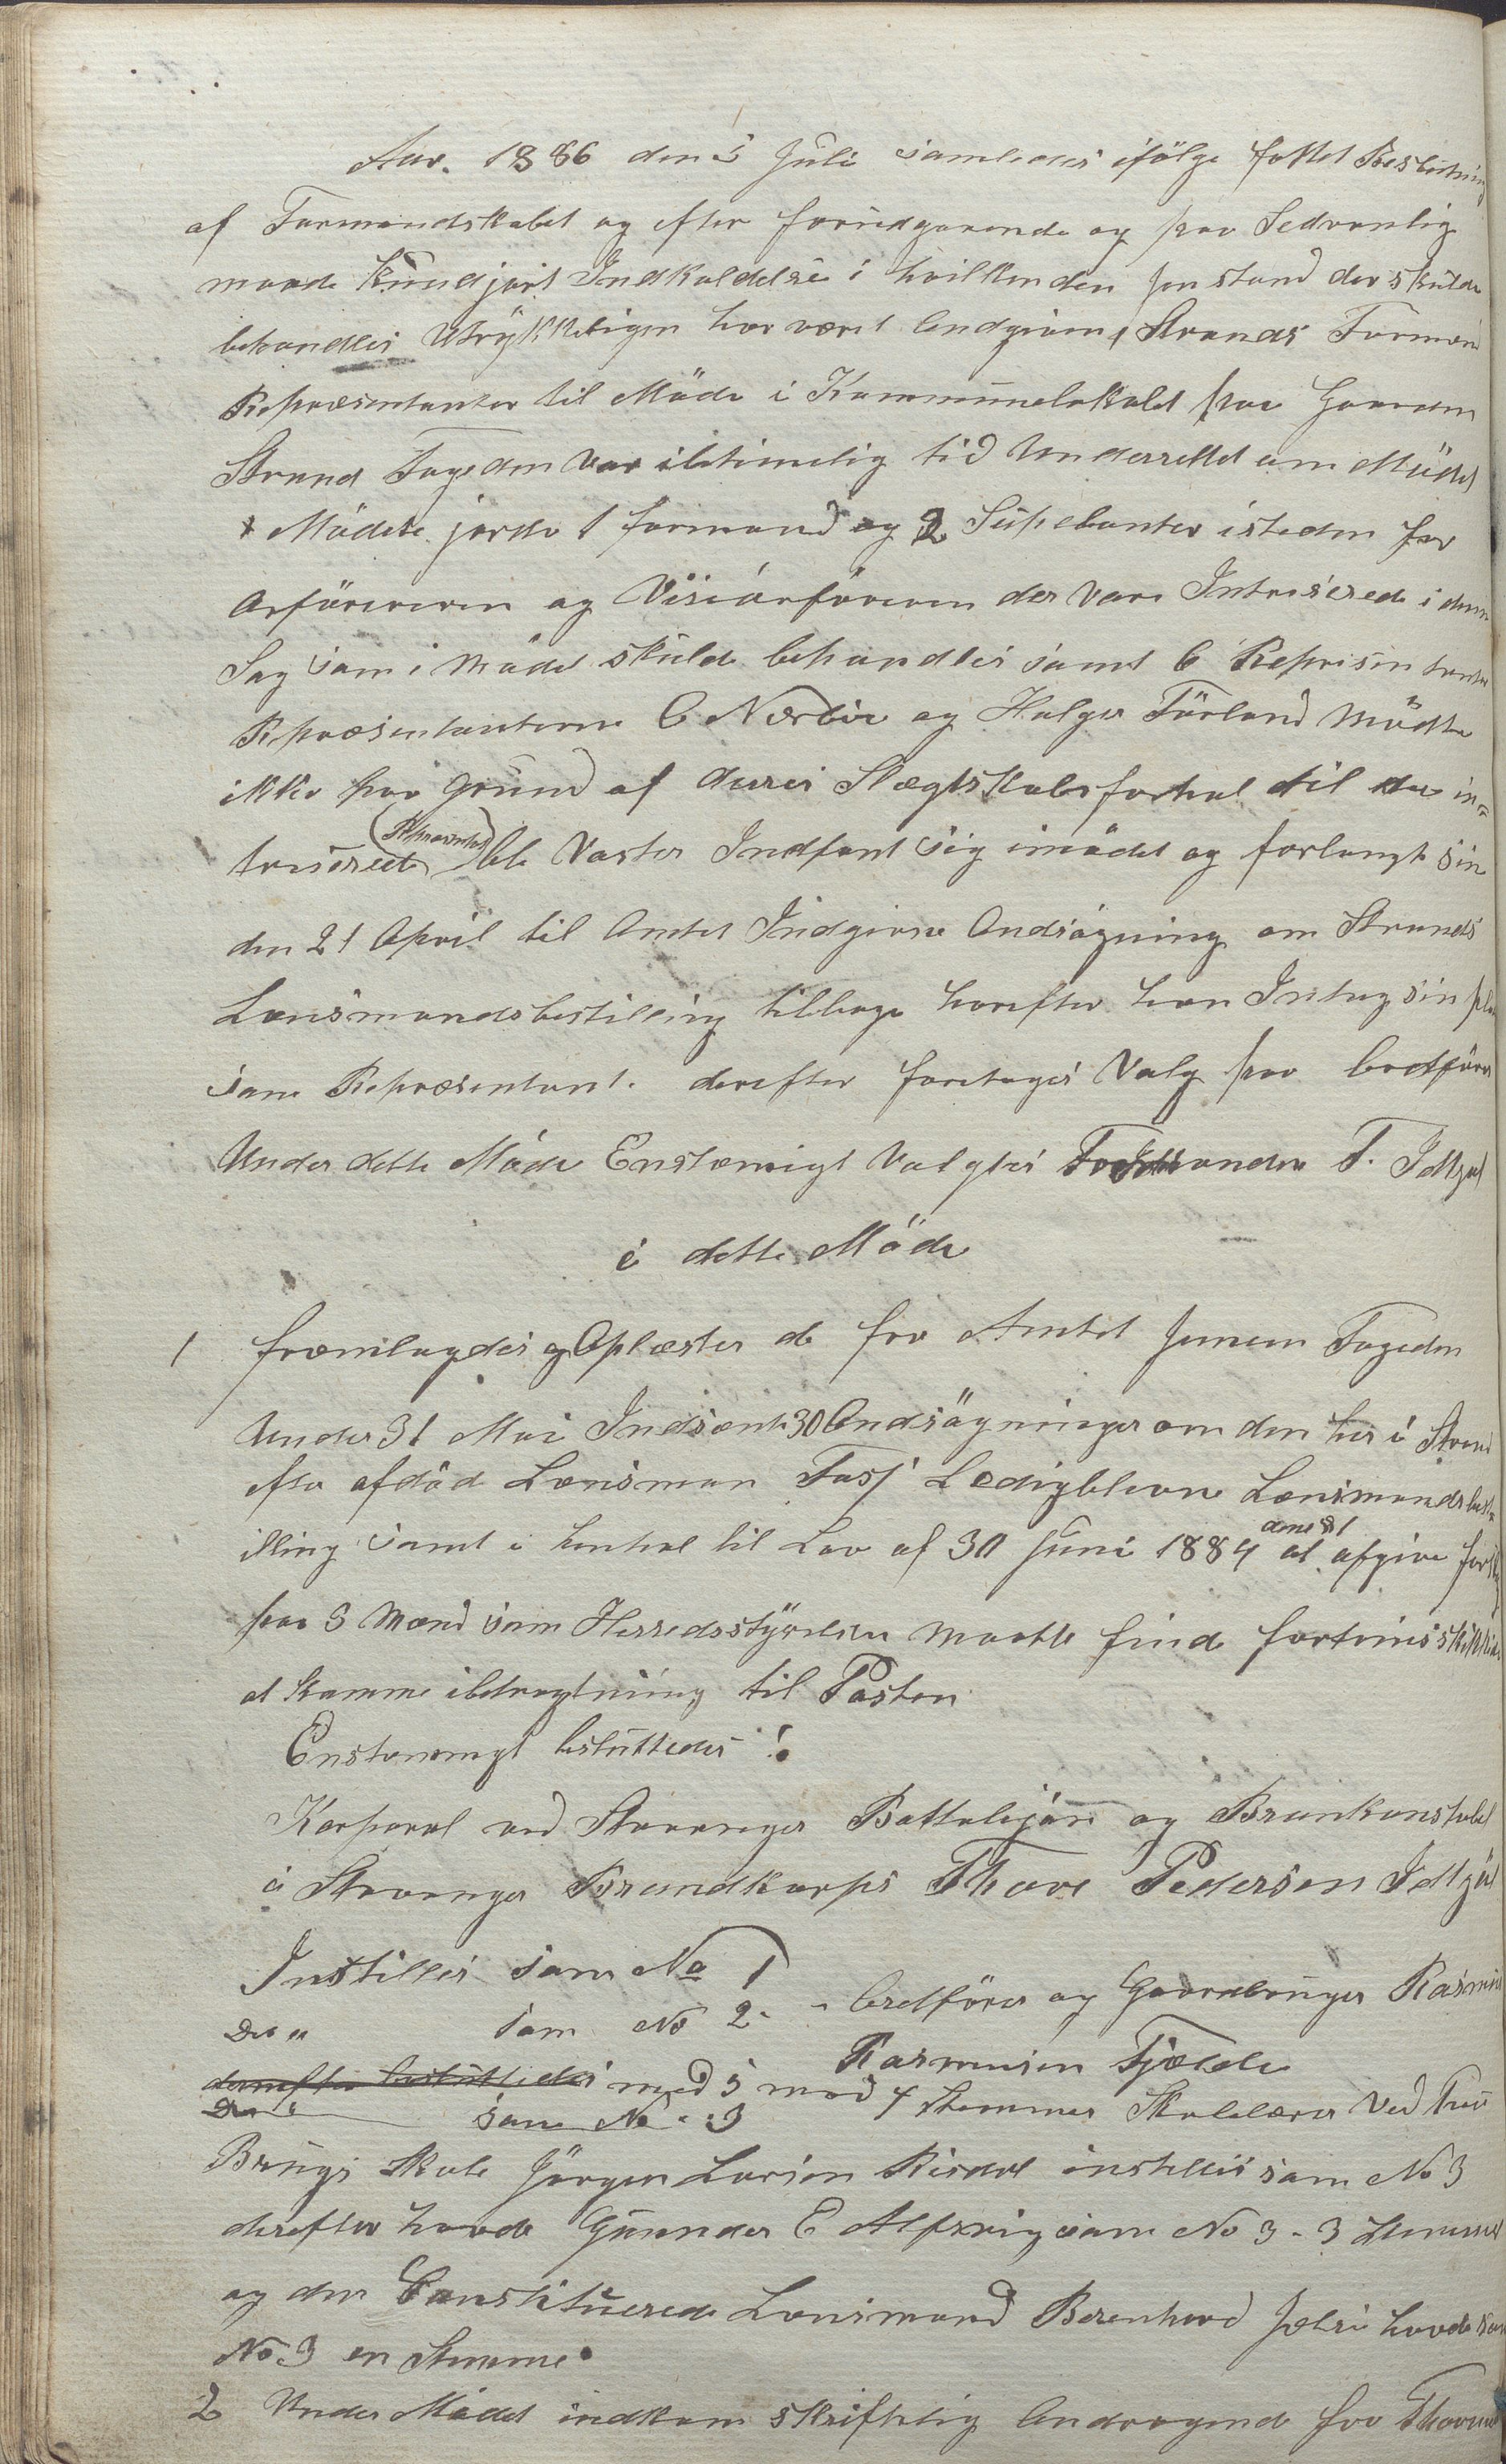 Aar. 1886 den 5 Juli samledes ifölge fattet Beslutning
af Formandskabet og efter forudgaaende og paa Sedvanlig
maade kundjort Indkaldelse i hvilken den jenstand der skulde
behandles Utrykkeligen har været Andgiven, Strands Formænd
Repræsentanter til Möde i Kommunelokalet paa Gaarden
Strand Fogeden var ibetimelig tid Underrettet om Mödet
Mödete jorde 1 formand og 2 Suplianter isteden for
Orföreren og Viseorföreren der vare Intreserede i denne
Sag som i Mödet skulde behandles samt 6 Reprisentanter
Repræsentanterne C Nærbö og Holger Törland mödte
ikke paa Grund af deres Slægtskabsforhol til de in-
treserede (Repræsentant) Ole Vaster Indfant sig imödet og forlangte sin
den 21 April til Amtet Indgivne Andsögning om Strands
Lensmandsbestilling tilbage horefter han Intog sin plads
som Repræsentant. derefter foretoges Valg paa Ordförer
Under dette Möde Enstemigt Valgtes T. Idtsøl
i dette Möde
1 fremlagdes og Oplæstes de fra Amtet Jenem Fogeden
Under 31 Mai Indsente 30 Andsögninger om den her i Strand
efter afdöd Lensman Fosj Ledigblevne Lensmandsbest-
illing samt i henhol til Lov af 30 Juni 1884 at afgive forslag
paa 3 Mænd som Herredsstyrelsen maatte finde fortrinsskikkede
at komme ibetragtning til Posten
Enstemmigt besluttedes :
Korporal ved Stavanger Battalijon og Brankonstabel
i Stavanger Brandkorps Thore Pedersen Idtsøl
Instilles som No 1
Do " som No 2 - Ordförer og Gaardbruger Rasmus
Rasmusen Fjælde
derefter besluttedes med 5 mod 4 Stemmer Skolelærer Ved Tau
Do " som No 3
Brugs Skole Jörgen Larsen Risdal instilles som No 3
derefter havde Gunder E Alfsvig som No 3 - 3 Stemmer
og den Constituerede Lensmand Berenhard Jelse havde som
No 3 en Stemme.
2 Under Mödet indkom skriftelig Andragende fra